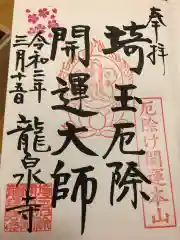 奉拝
埼玉厄除
開運大師
令和三年
三月十五日
龍泉寺
厄除け開運
本山